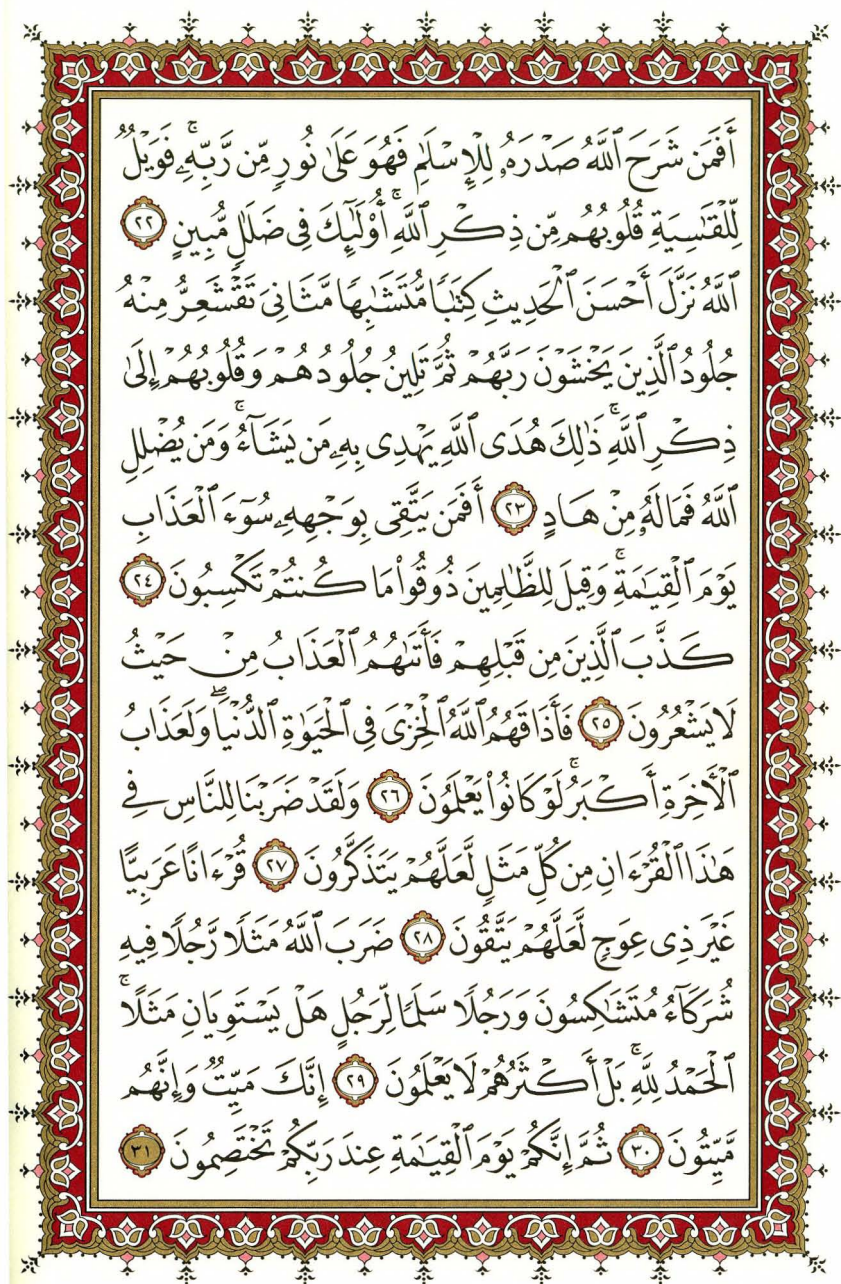 أَفَمَن شَرَحَ ٱللَّهُ صَدْرَهُۥ لِلْإِسْلَٰمِ فَهُوَ عَلَىٰ نُورٍ مِّن رَّبِّهِۦۚ فَوَيْلٌ
لِّلْقَٰسِيَةِ قُلُوبُهُم مِّن ذِكْرِ ٱللَّهِۚ أُو۟لَٰٓئِكَ فِى ضَلَٰلٍ مُّبِينٍ ٢٢
ٱللَّهُ نَزَّلَ أَحْسَنَ ٱلْحَدِيثِ كِتَٰبًا مُّتَشَٰبِهًا مَّثَانِىَ تَقْشَعِرُّ مِنْهُ
جُلُودُ ٱلَّذِينَ يَخْشَوْنَ رَبَّهُمْ ثُمَّ تَلِينُ جُلُودُهُمْ وَقُلُوبُهُمْ إِلَىٰ
ذِكْرِ ٱللَّهِۚ ذَٰلِكَ هُدَى ٱللَّهِ يَهْدِى بِهِۦ مَن يَشَآءُۚ وَمَن يُضْلِلِ
ٱللَّهُ فَمَا لَهُۥ مِنْ هَادٍ ٢٣ أَفَمَن يَتَّقِى بِوَجْهِهِۦ سُوٓءَ ٱلْعَذَابِ
يَوْمَ ٱلْقِيَٰمَةِۚ وَقِيلَ لِلظَّٰلِمِينَ ذُوقُوا۟ مَا كُنتُمْ تَكْسِبُونَ ٢٤
كَذَّبَ ٱلَّذِينَ مِن قَبْلِهِمْ فَأَتَىٰهُمُ ٱلْعَذَابُ مِنْ حَيْثُ
لَا يَشْعُرُونَ ٢٥ فَأَذَاقَهُمُ ٱللَّهُ ٱلْخِزْىَ فِى ٱلْحَيَوٰةِ ٱلدُّنْيَاۖ وَلَعَذَابُ
ٱلْءَاخِرَةِ أَكْبَرُۚ لَوْ كَانُوا۟ يَعْلَمُونَ ٢٦ وَلَقَدْ ضَرَبْنَا لِلنَّاسِ فِى
هَٰذَا ٱلْقُرْءَانِ مِن كُلِّ مَثَلٍ لَّعَلَّهُمْ يَتَذَكَّرُونَ ٢٧ قُرْءَانًا عَرَبِيًّا
غَيْرَ ذِى عِوَجٍ لَّعَلَّهُمْ يَتَّقُونَ ٢٨ ضَرَبَ ٱللَّهُ مَثَلًا رَّجُلًا فِيهِ
شُرَكَآءُ مُتَشَٰكِسُونَ وَرَجُلًا سَلَمًا لِّرَجُلٍ هَلْ يَسْتَوِيَانِ مَثَلًاۚ
ٱلْحَمْدُ لِلَّهِۚ بَلْ أَكْثَرُهُمْ لَا يَعْلَمُونَ ٢٩ إِنَّكَ مَيِّتٌ وَإِنَّهُم
مَّيِّتُونَ ٣٠ ثُمَّ إِنَّكُمْ يَوْمَ ٱلْقِيَٰمَةِ عِندَ رَبِّكُمْ تَخْتَصِمُونَ ٣١